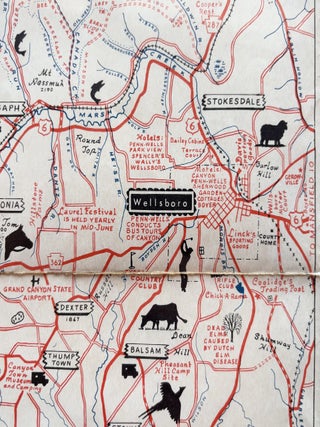 Mt
Nessmuk
2190
MARSH
CREEK
Cooper's
STOKESDALE
6
6
Round
Top
Hotels:
PENN-WELLS
PARK VIEW
SPENCER'S
WALLY'S
WELLSBORO
Darley Cabins
Terrace
Court
Motels:
CANYON
PENN-WELLS
SHERWOOD
GARDENS
COTTAGES
Darlow
Hill
Laurel Festival
IS HELD YEARLY
IN MID-JUNE
Wellsboro
PENN-WELLS
CONDUCTS
BUS TOURS
OF CANYON
Linck's
SPORTING
GOODS
COUNTY
HOME
TO MANSFIELD
6
362
GRAND CANYON STATE
AIRPORT
COUNTRY
CLUB
RIFLE
CLUB
Chick-A-Rama
Coolidge's
Trading Post
DEXTER
1867
THUMP
TOWN
BALSAM
Dean
Hill
DEAD
ELMS
CAUSED
BY DUTCH
ELM
DISEASE
Shumway
Hill
Canyon
Town
Museum
and Camping
Pheasant
Hill Camp
Site